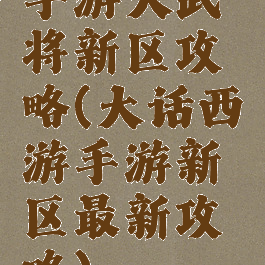 手游大武
将新区攻
略(大话西
游手游新
区最新攻
略)